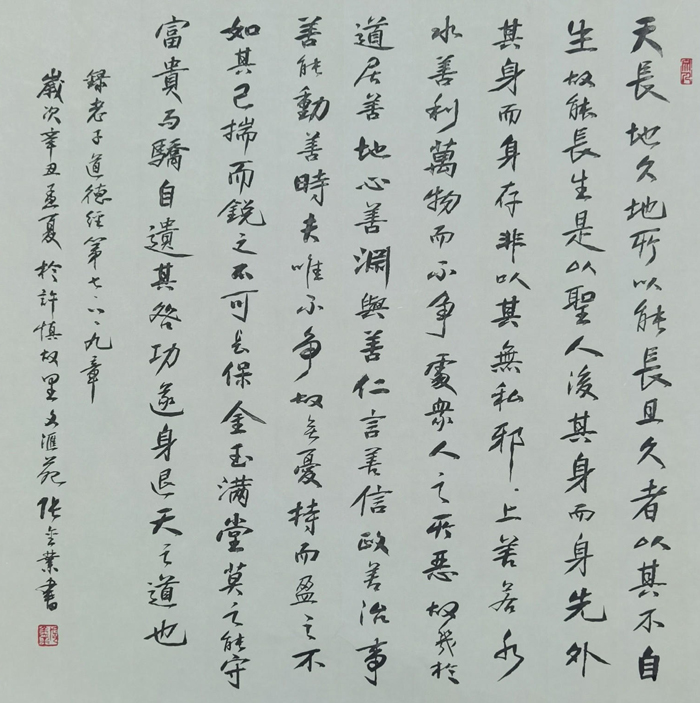 天長地久地所以能長且久者以其不自
生故能長生是以聖人後其身而身先外
其身而身存非以其無私邪上善若水
水善利萬物而不争處衆人之所惡故幾於
道居善地心善淵與善仁言善信政善治事
善能動善時夫唯不争故無憂持而盈之不
如其已揣而銳之不可長保金玉满堂莫之能守
富貴而驕自遺其咎功遂身退天之道也
録老子道德经第七八九章
嵗次辛丑孟夏於許慎故里文匯苑張金業書